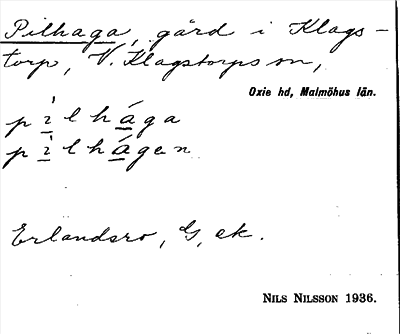 Pilhaga, gård i Klags-
torp, V. Klagstorps sn,
Oxie hd, Malmöhus län.
pìlhága
pìlhágen
Erlandsro, G, ek.
NILS NILSSON 1936.